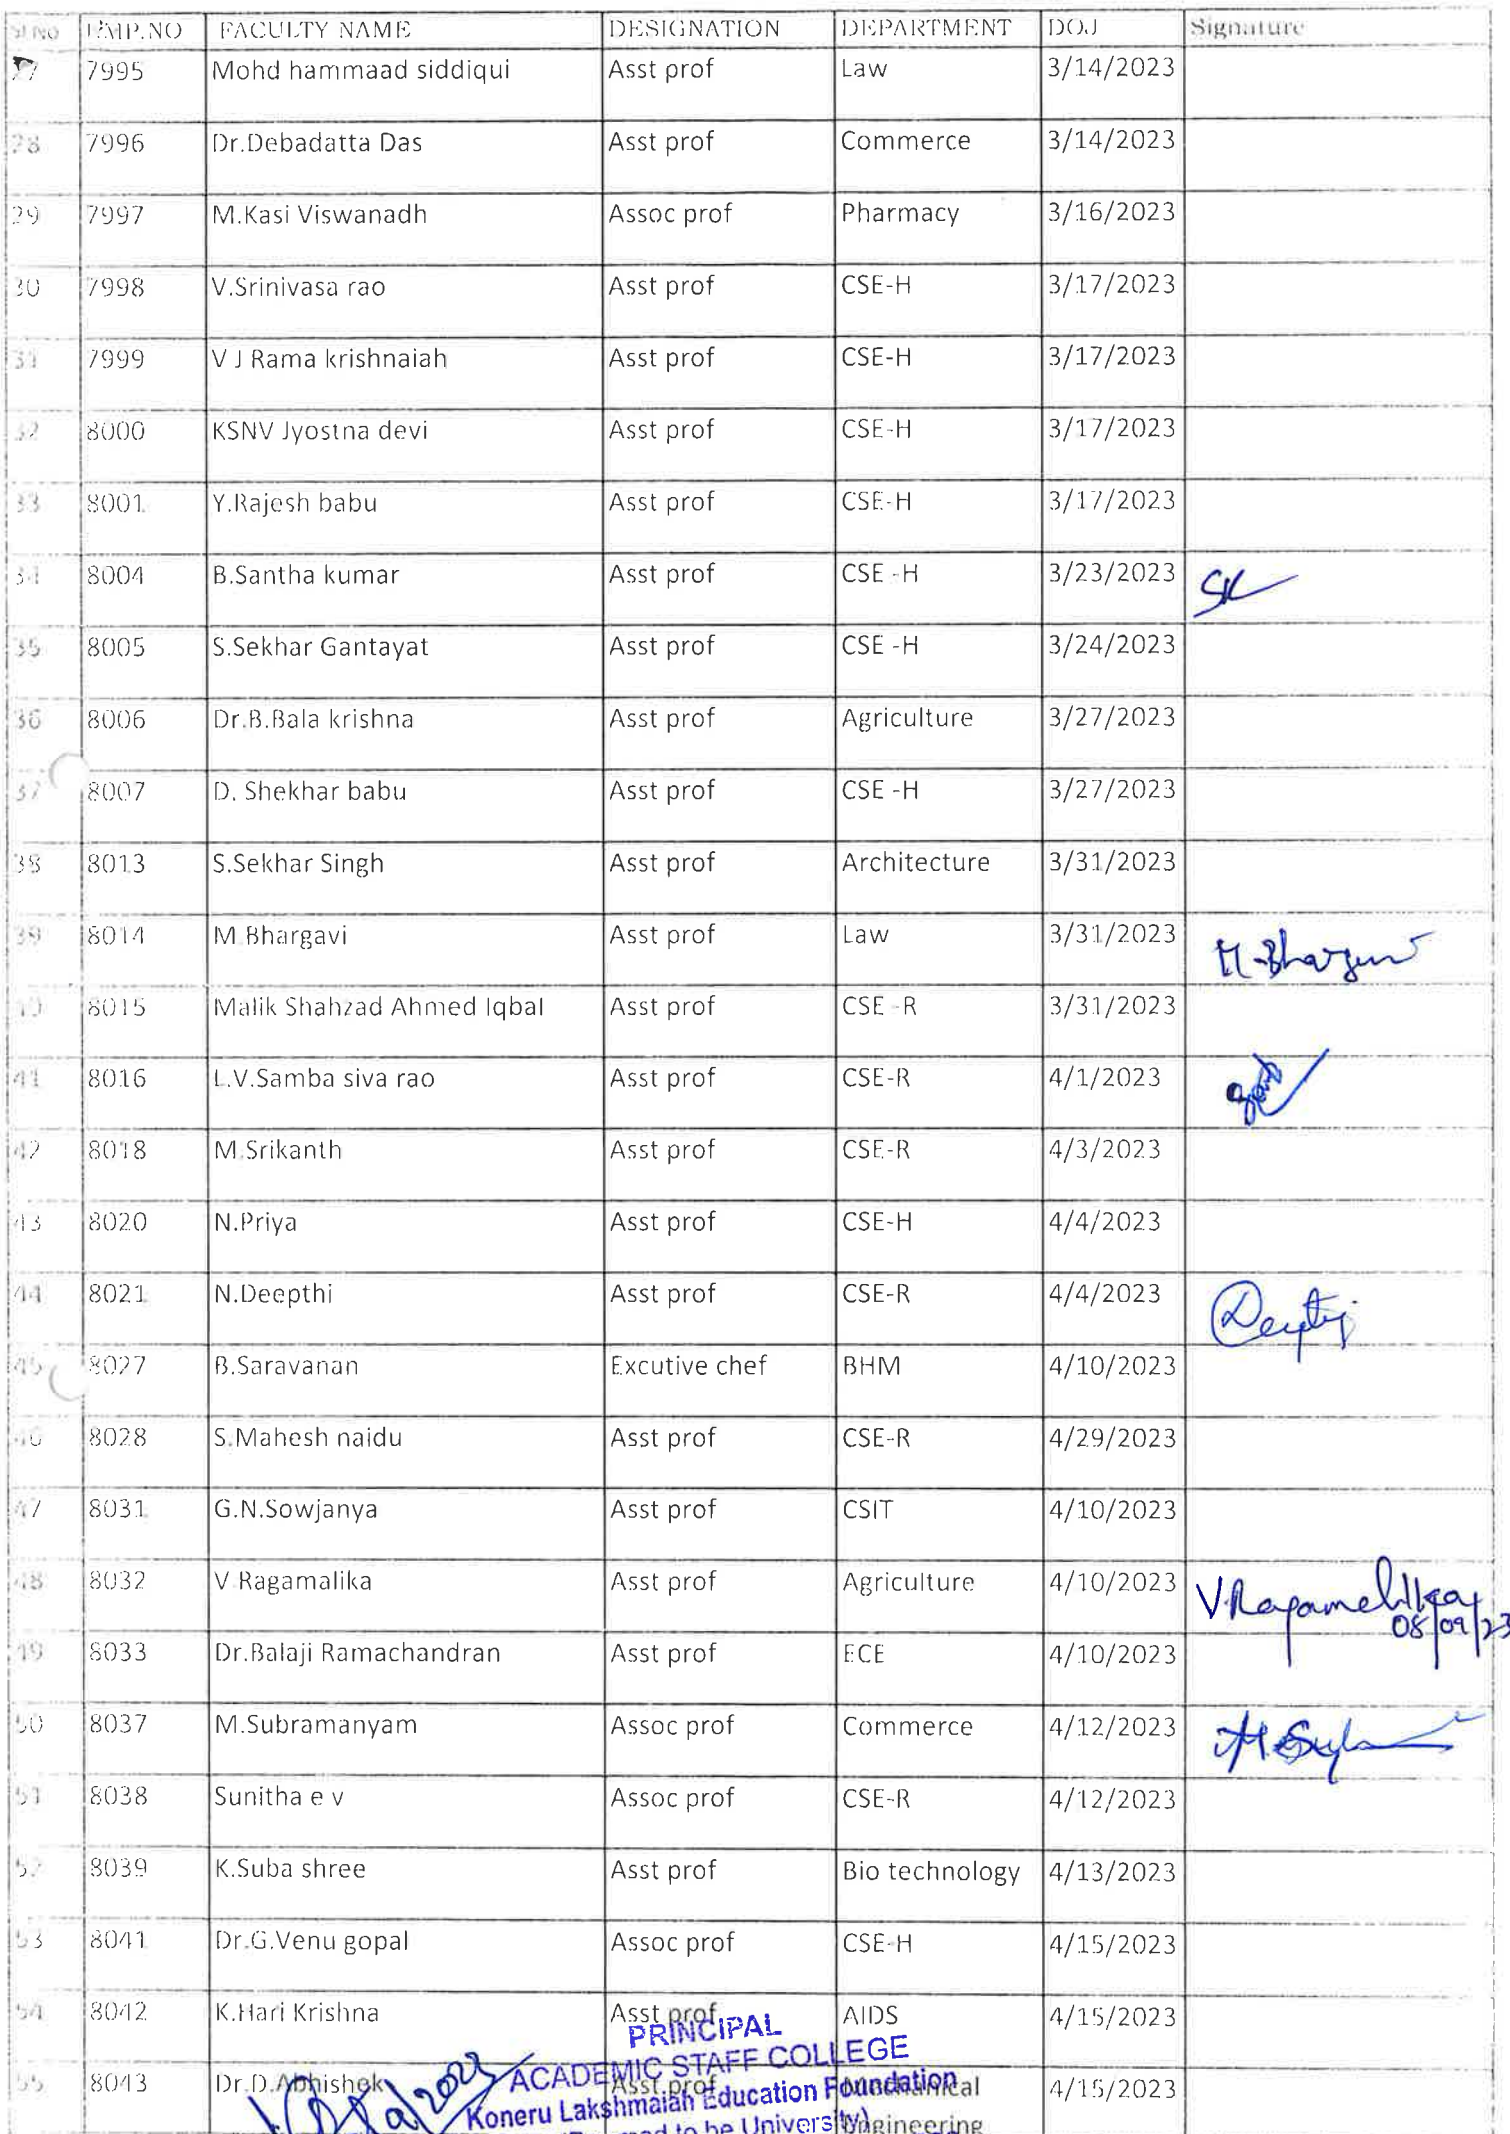 SI NO EMP.NO FACULTY NAME DESIGNATION DEPARTMENT DOJ Signature
27 7995 Mohd hammaad siddiqui Asst prof Law 3/14/2023
28 7996 Dr.Debadatta Das Asst prof Commerce 3/14/2023
29 7997 M.Kasi Viswanadh Assoc prof Pharmacy 3/16/2023
30 7998 V.Srinivasa rao Asst prof CSE-H 3/17/2023
31 7999 V J Rama krishnaiah Asst prof CSE-H 3/17/2023
32 8000 KSNV Jyostna devi Asst prof CSE-H 3/17/2023
33 8001 Y.Rajesh babu Asst prof CSE-H 3/17/2023
34 8004 B.Santha kumar Asst prof CSE -H 3/23/2023
35 8005 S.Sekhar Gantayat Asst prof CSE -H 3/24/2023
36 8006 Dr.B.Bala krishna Asst prof Agriculture 3/27/2023
37 8007 D. Shekhar babu Asst prof CSE -H 3/27/2023
38 8013 S.Sekhar Singh Asst prof Architecture 3/31/2023
39 8014 M Bhargavi Asst prof Law 3/31/2023
40 8015 Malik Shahzad Ahmed Iqbal Asst prof CSE -R 3/31/2023
41 8016 L.V.Samba siva rao Asst prof CSE-R 4/1/2023
42 8018 M.Srikanth Asst prof CSE-R 4/3/2023
43 8020 N.Priya Asst prof CSE-H 4/4/2023
44 8021 N.Deepthi Asst prof CSE-R 4/4/2023
45 8027 B.Saravanan Excutive chef BHM 4/10/2023
46 8028 S.Mahesh naidu Asst prof CSE-R 4/29/2023
47 8031 G.N.Sowjanya Asst prof CSIT 4/10/2023
48 8032 V Ragamalika Asst prof Agriculture 4/10/2023 V.Ragamalika
08/09/23
49 8033 Dr.Balaji Ramachandran Asst prof ECE 4/10/2023
50 8037 M.Subramanyam Assoc prof Commerce 4/12/2023
51 8038 Sunitha e v Assoc prof CSE-R 4/12/2023
52 8039 K.Suba shree Asst prof Bio technology 4/13/2023
53 8041 Dr.G.Venu gopal Assoc prof CSE-H 4/15/2023
54 8042 K.Hari Krishna Asst prof AIDS 4/15/2023
55 8043 Dr.D.Abhishek Asst prof Mechanical 4/15/2023
Engineering
PRINCIPAL
ACADEMIC STAFF COLLEGE
Koneru Lakshmaiah Education Foundation
to be University)